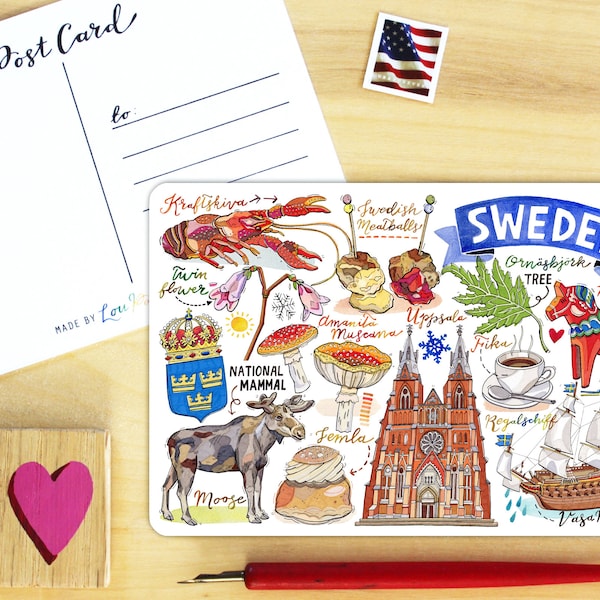 Post Card
to:
MADE BY Lou
Kraftskiva
Swedish
Meatballs
SWEDE
Twin
flower
Ornäsbjörk
TREE
Uppsala
Amanita
Muscaria
Fika
NATIONAL
MAMMAL
Semla
Regalschiff
Moose
Vasa